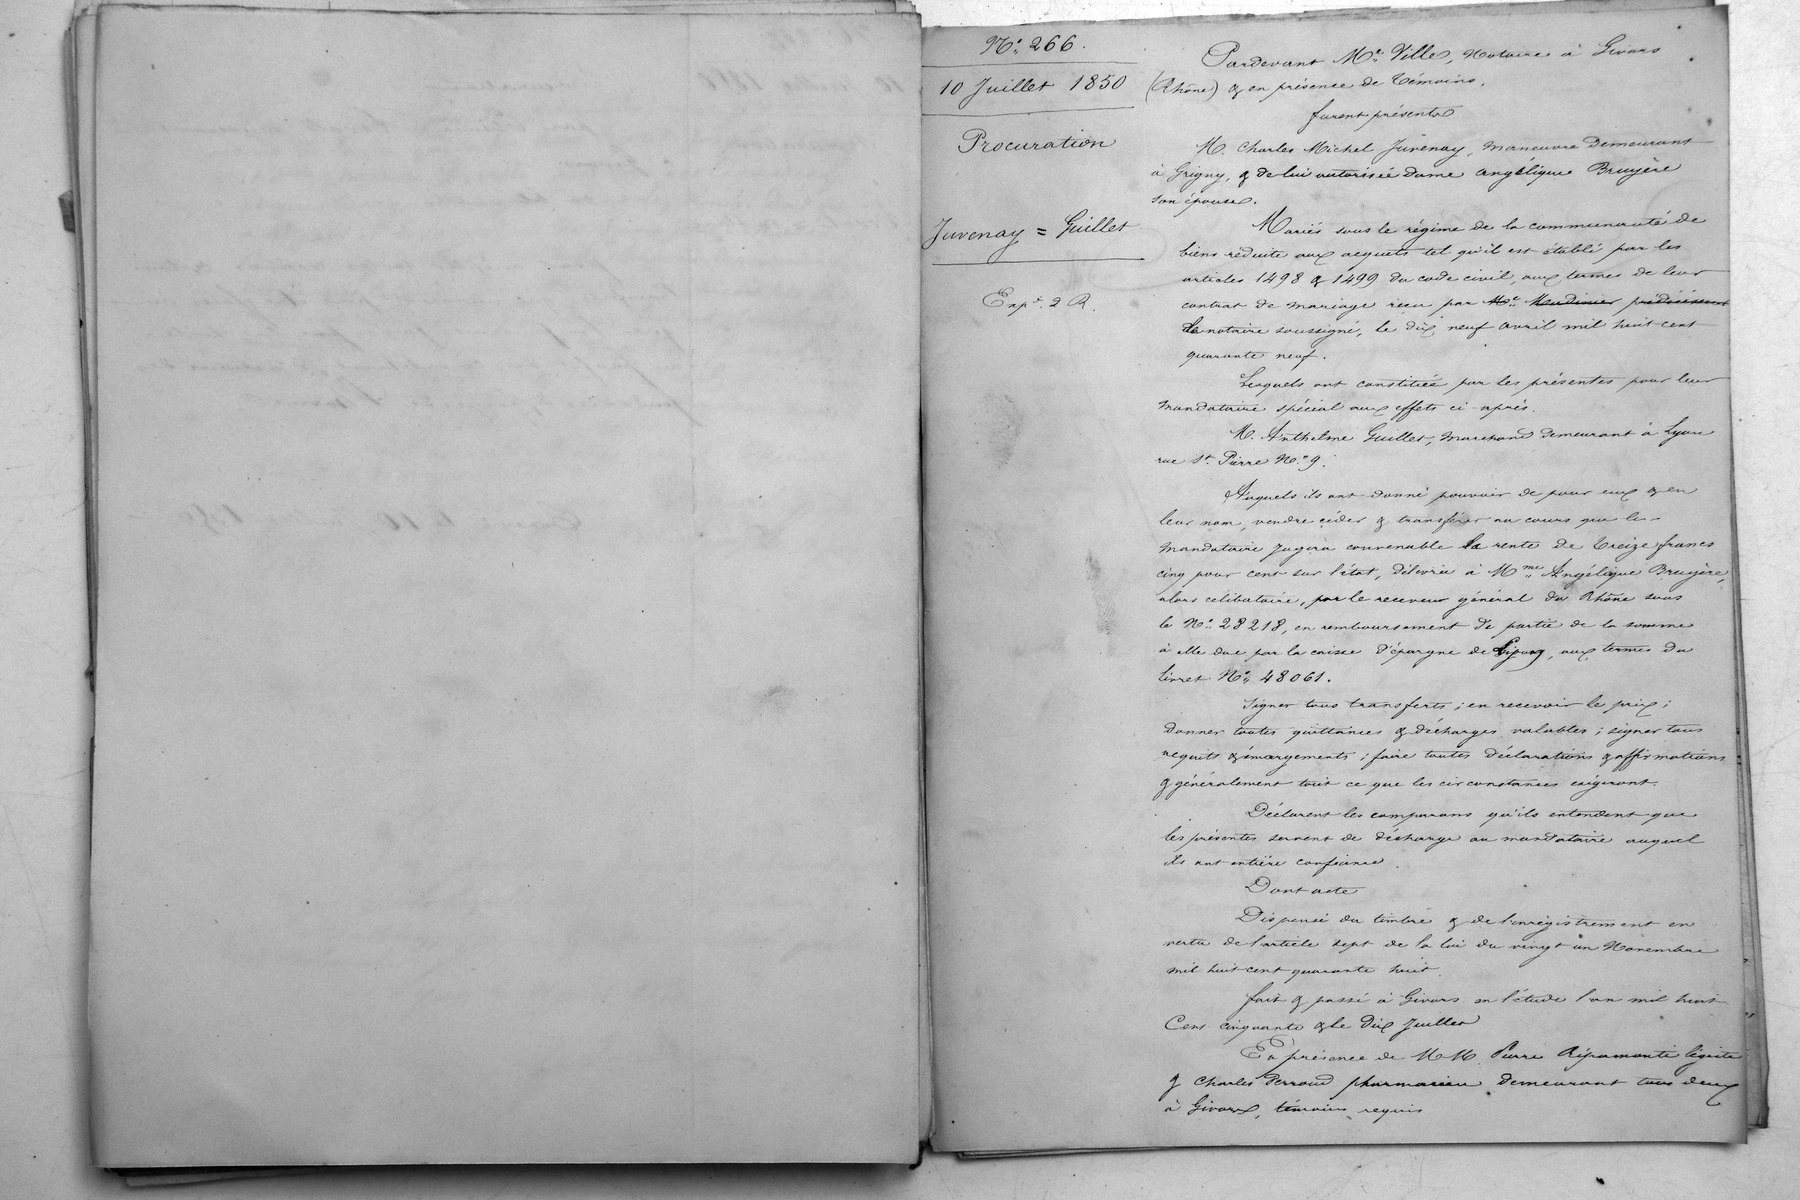 N° 266.
10 Juillet 1850
Procuration
Juvenay = Guillet
Exp.on 2 R.
Pardevant Me Ville, Notaire à Givors
(Rhône) & en présence de témoins,
furent présents
M. Charles Michel Juvenay, manœuvre demeurant
à Grigny, & de lui autorisée dame angélique Bruyère
son épouse.
Mariés sous le régime de la communauté de
biens réduite aux acquets tel qu'il est établi par les
articles 1498 & 1499 du code civil, aux termes de leur
contrat de mariage reçu par Me
le notaire soussigné, le dix neuf avril mil huit cent
quarante neuf.
Lesquels ont constitué par les présentes pour leur
mandataire spécial aux effets ci-après.
M. Anthelme Guillet, marchand demeurant à Lyon
rue St. Pierre N° 9.
Auquels ils ont donné pouvoir de pour eux & en
leur nom, vendre céder & transférer au cours que le
mandataire jugera convenable la rente de treize francs
cinq pour cent sur l'état, délivrée à Mme Angélique Bruyère,
alors célibataire, par le receveur général du Rhône sous
le N° 28218, en remboursement de partie de la somme
à elle due par la caisse d'épargne de, aux termes du
livret N° 48061.
Signer tous transferts ; en recevoir le prix ;
donner toutes quittances & décharges valables ; signer tous
acquits & émargements ; faire toutes déclarations & affirmations
& généralement tout ce que les circonstances exigeront.
Déclarent les comparans qu'ils entendent que
les présentes servent de décharge au mandataire auquel
ils ont entière confiance.
Dont acte
Dispensé du timbre & de l'enregistrement en
vertu de l'article sept de la loi du vingt un Novembre
mil huit cent quarante huit.
fait & passé à Givors en l'étude l'an mil huit
Cent cinquante & le dix Juillet
En présence de M.M. Pierre
& Charles Perroud pharmacien demeurant tous deux
à Givors, témoins requis